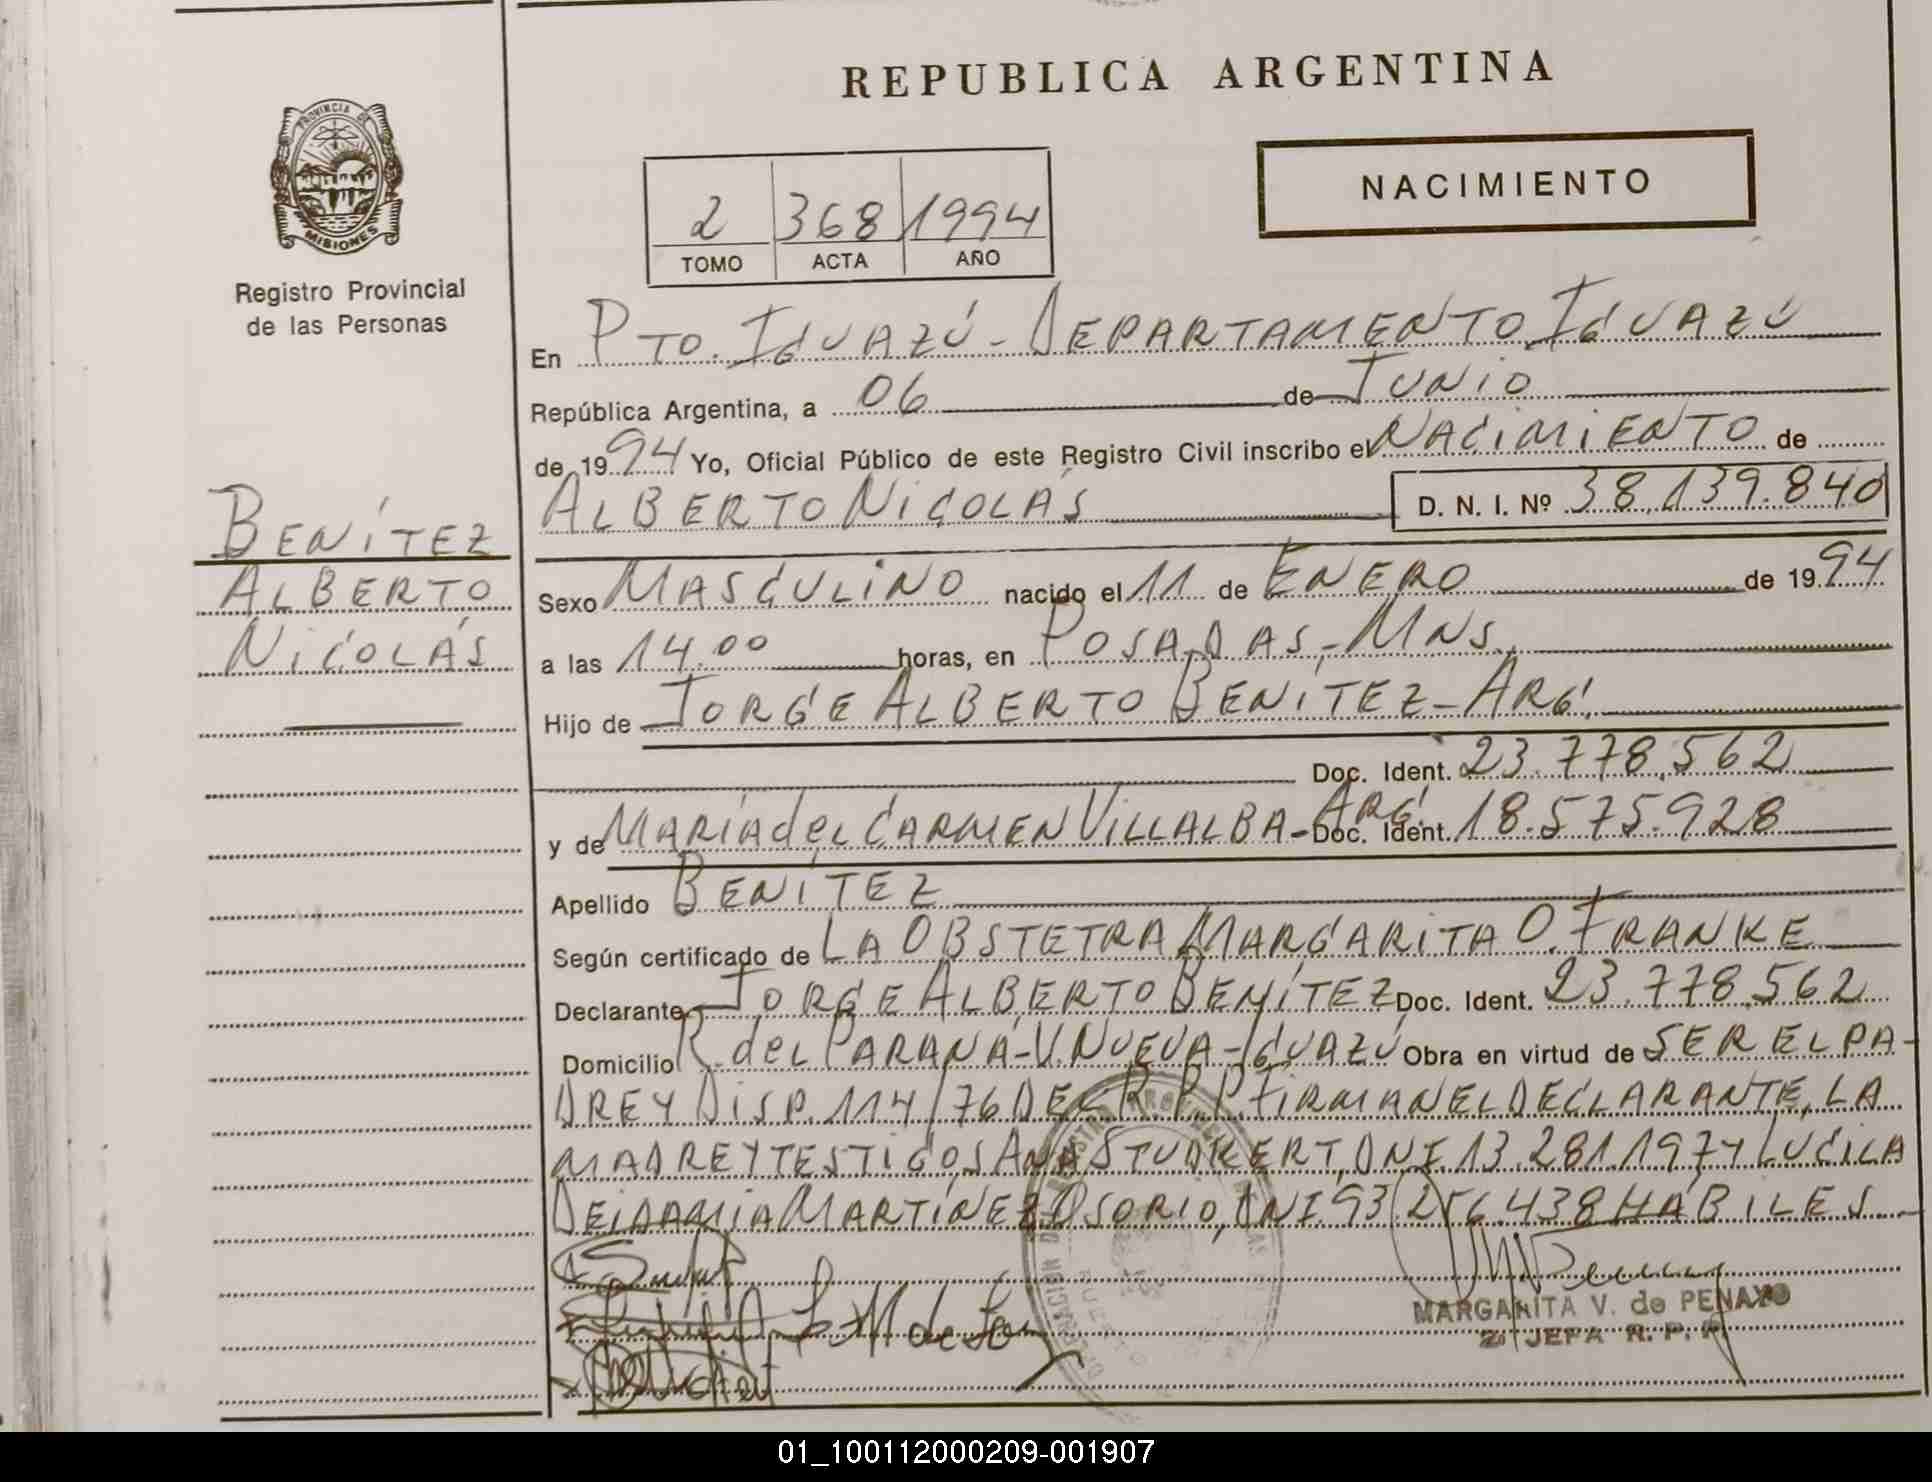 REPUBLICA ARGENTINA
NACIMIENTO
PROVINCIA DE
MISIONES
Registro Provincial
de las Personas
2 368 1994
TOMO ACTA AÑO
En PTO. IGUAZÚ - DEPARTAMENTO IGUAZÚ
República Argentina, a 06 de JUNIO
de 1994 Yo, Oficial Público de este Registro Civil inscribo el NACIMIENTO de
ALBERTO NICOLÁS D. N. I. Nº 38.139.840
BENÍTEZ
ALBERTO
NICOLÁS
Sexo MASCULINO nacido el 11 de ENERO de 1994
a las 14.00 horas, en POSADAS, - MNS.
Hijo de JORGE ALBERTO BENÍTEZ - ARG.
Doc. Ident. 23.778.562
y de MARÍA del CARMEN VILLALBA - ARG. Doc. Ident. 18.575.928
Apellido BENÍTEZ
Según certificado de LA OBSTETRA MARGARITA O. FRANKE
Declarante JORGE ALBERTO BENÍTEZ Doc. Ident. 23.778.562
Domicilio R. del PARANÁ - V. NUEVA - IGUAZÚ Obra en virtud de SER EL PA-
DRE Y DISP. 114/76 DEL R.P.P. FIRMAN EL DECLARANTE, LA
MADRE Y TESTIGOS ANA STUDKERT, DNI. 13.281.197 Y LUCILA
DEIDAMIA MARTÍNEZ OSORIO, DNI. 93.256.438 HÁBILES. -
MARGARITA V. de PENAYO
JEFA R. P. P.
01_100112000209-001907